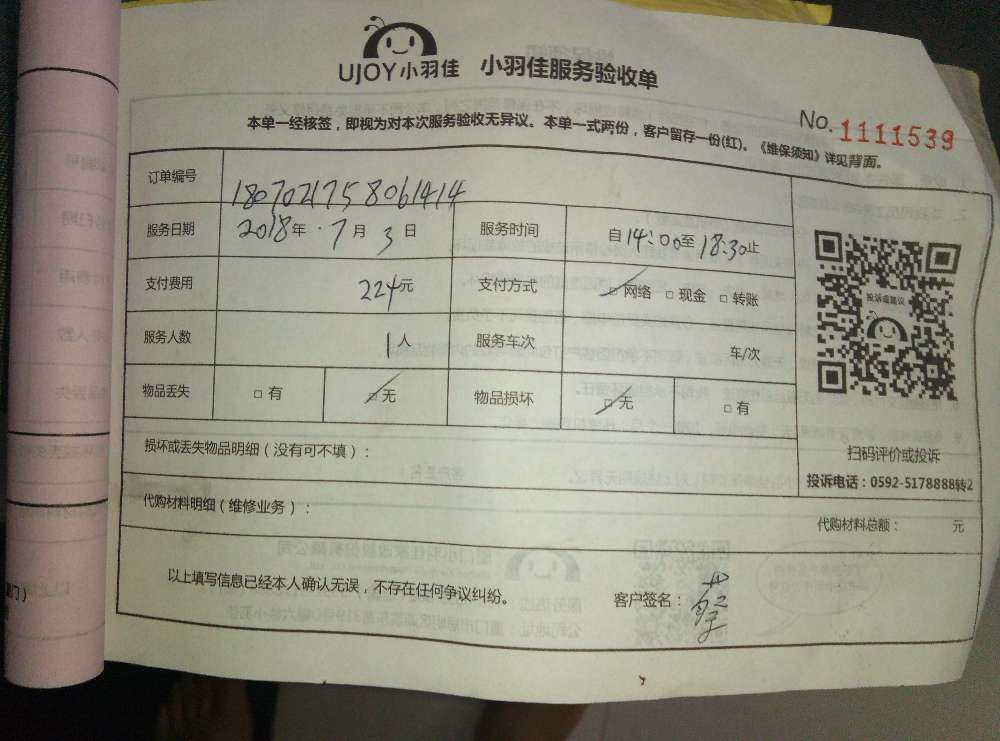 UJOY小羽佳 小羽佳服务验收单
No. 1111539
本单一经核签，即视为对本次服务验收无异议。本单一式两份，客户留存一份(红)。《维保须知》详见背面。
订单编号 180702175806 1414
服务日期 2018年·7月3日 服务时间 自14:00至18:30止
支付费用 224元 支付方式 □网络 □现金 □转账
服务人数 1人 服务车次 车/次
物品丢失 □有 □无 物品损坏 □无 □有
投诉或建议
扫码评价或投诉
投诉电话：0592-5178888转2
损坏或丢失物品明细（没有可不填）：
代购材料明细（维修业务）：
代购材料总额： 元
以上填写信息已经本人确认无误，不存在任何争议纠纷。
客户签名：